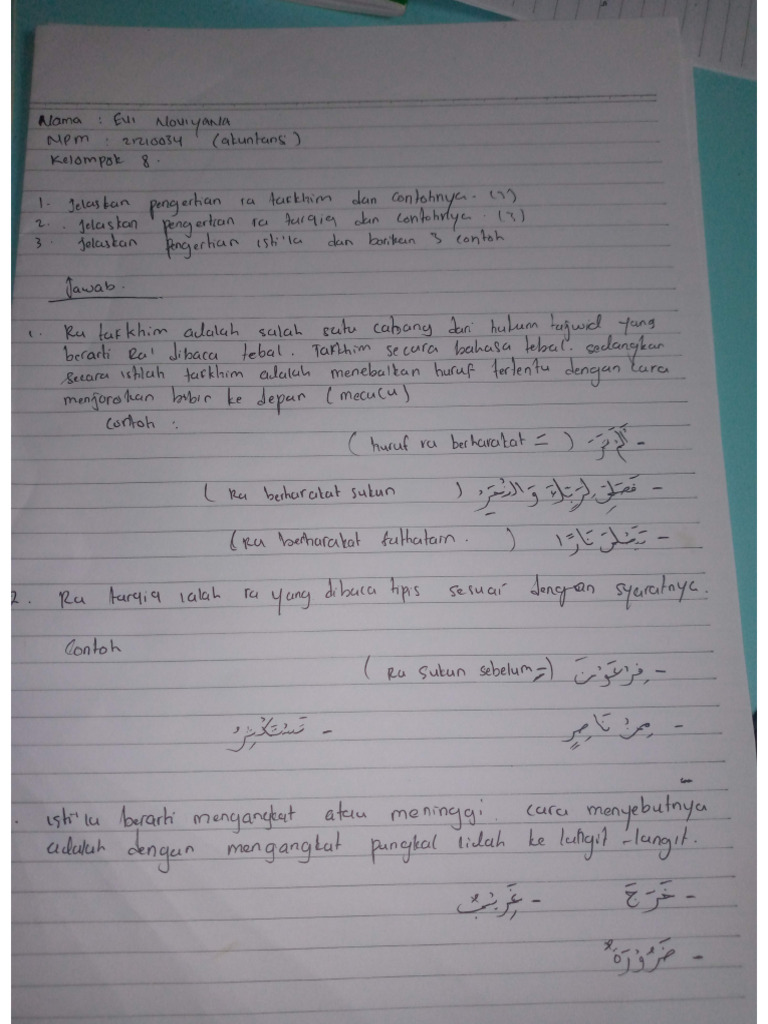 Nama : Evi Noviyana
NPM : 21210034 (akuntans)
Kelompok 8.
1. Jelaskan pengertian ra tarkhim dan contohnya. (3)
2. Jelaskan pengertian ra tarqiq dan contohnya. (3)
3. Jelaskan pengertian isti'la dan berikan 3 contoh
Jawab.
1. Ra tafkhim adalah salah satu cabang dari hukum tajwid yang
berarti Ra' dibaca tebal. Tafkhim secara bahasa tebal. sedangkan
secara istilah tafkhim adalah menebalkan huruf tertentu dengan cara
menjorokan bibir ke depan (mecucu)
Contoh :
- أَلَمْ تَرَ (huruf ra berharakat
- فَصَلِّ لِرَبِّكَ وَانْحَرْ (Ra berharakat sukun)
- نَارًا (Ra berharakat fathatain.)
2. Ra tarqiq ialah ra yang dibaca tipis sesuai dengan syaratnya.
Contoh
- فِرْعَوْنَ (Ra sukun sebelum
- مِنْ نَاصِرٍ - تَسْتَكْثِرُ
. isti'la berarti mengangkat atau meninggi. cara menyebutnya
adalah dengan mengangkat pangkal lidah ke langit-langit.
- خَرَجَ - غَرِيْبٌ
- ضَرُوْرَةٌ